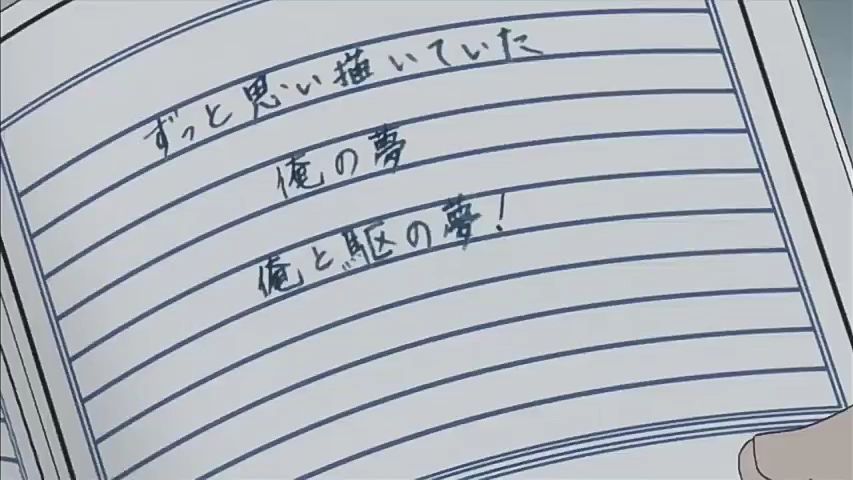 ずっと思い描いていた
俺の夢
俺と駆の夢!